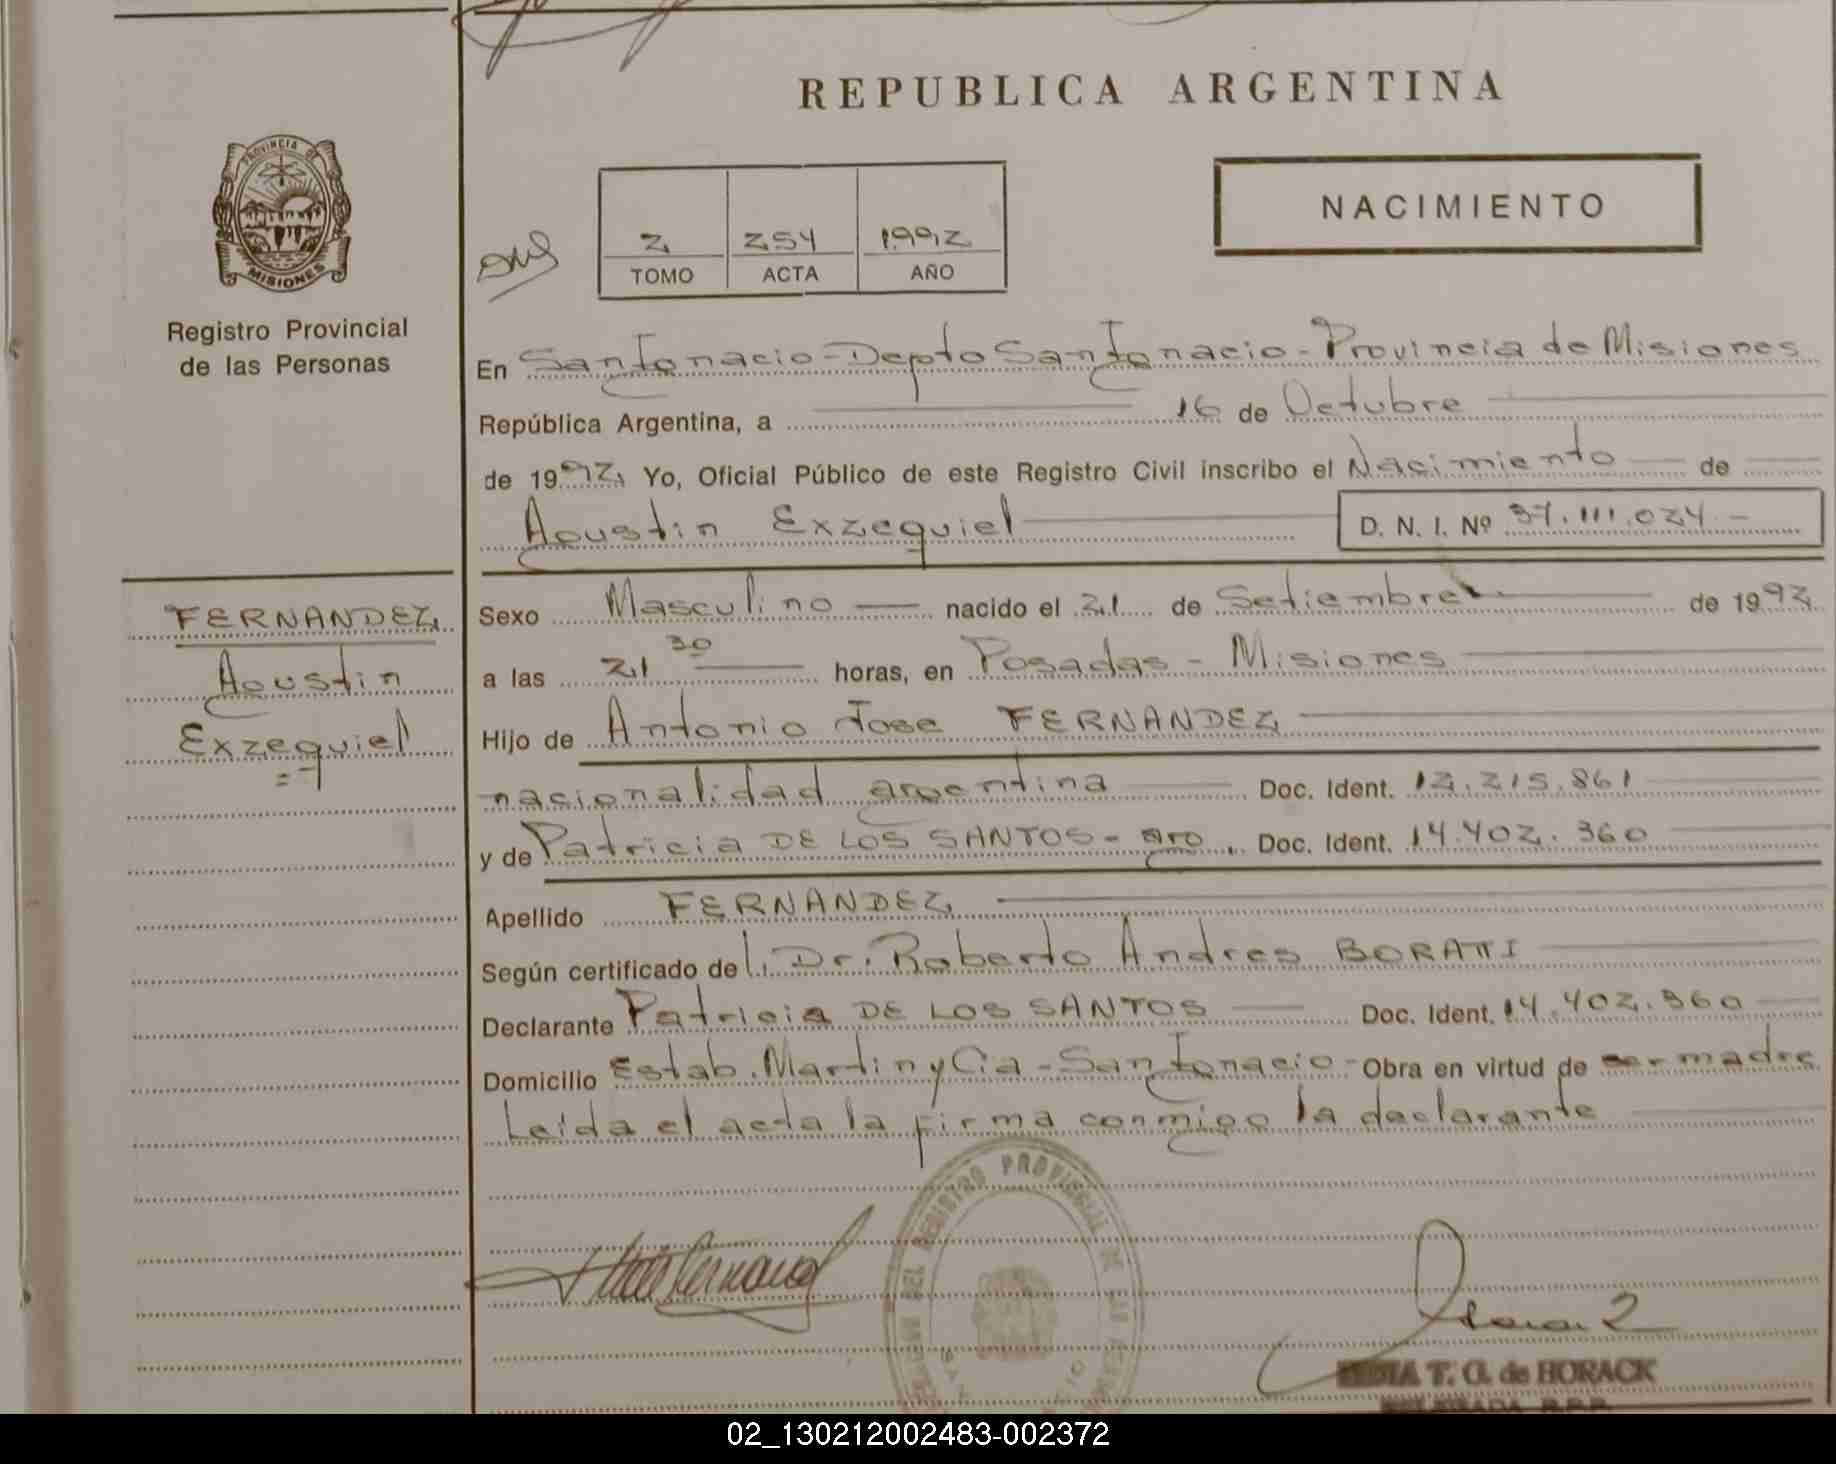 REPUBLICA ARGENTINA
PROVINCIA DE MISIONES
Registro Provincial
de las Personas
NACIMIENTO
2 254 1992
TOMO ACTA AÑO
En San Ignacio - Depto San Ignacio - Provincia de Misiones
República Argentina, a 16 de Octubre
de 1992, Yo, Oficial Público de este Registro Civil inscribo el Nacimiento de
Agustin Exzequiel D. N. I. Nº 37.111.024.-
FERNANDEZ
Agustin
Exzequiel
Sexo Masculino nacido el 21 de Setiembre de 1992
a las 21 30 horas, en Posadas - Misiones
Hijo de Antonio Jose FERNANDEZ
nacionalidad argentina Doc. Ident. 12.215.861
y de Patricia DE LOS SANTOS - arg. Doc. Ident. 14.402.360
Apellido FERNANDEZ
Según certificado del Dr. Roberto Andres BORATTI
Declarante Patricia DE LOS SANTOS Doc. Ident. 14.402.360
Domicilio Estab. Martin y Cia - San Ignacio - Obra en virtud de ser madre
Leida el acta la firma conmigo la declarante
DEL REGISTRO PROVINCIAL DE LAS
T. G. de HORACK
02_130212002483-002372